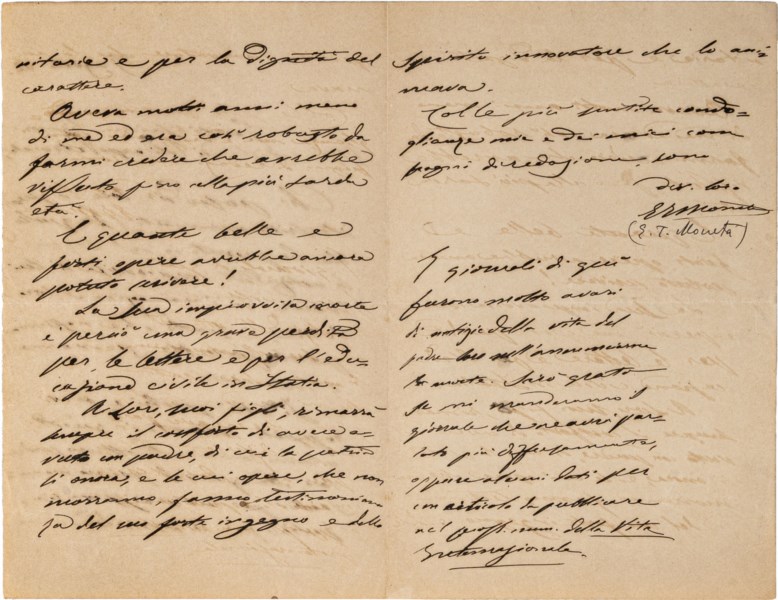 nitarie e per la dignità del
carattere.
Aveva molti anni meno
di me ed era così robusto da
farmi credere che avrebbe
vissuto fino alla più tarda
età.
E quante belle e
forti opere avrebbe ancora
potuto scrivere!
La sua improvvisa morte
è perciò una grave perdita
per le lettere e per l'edu-
cazione civile in Italia.
A Lor, suoi figli, rimarrà
sempre il conforto di avere a-
vuto un padre, di cui la patria
si onora, e le cui opere, che non
morranno, fanno testimonian-
za del suo forte ingegno e dello
spirito innovatore che lo ani-
mava.
Colle più sentite condo-
glianze mie e dei miei com
pagni di redazione, sono
dev. loro
E T Moneta
(E. T. Moneta)
I giornali di qui
furono molto avari
di notizie della vita del
padre loro nell'annunciarne
la morte. Sarò grato
se mi manderanno il
giornale che ne avrà par-
lato più diffusamente,
oppure alcuni dati per
un articolo da pubblicare
nel pross. num. della Vita
Internazionale.